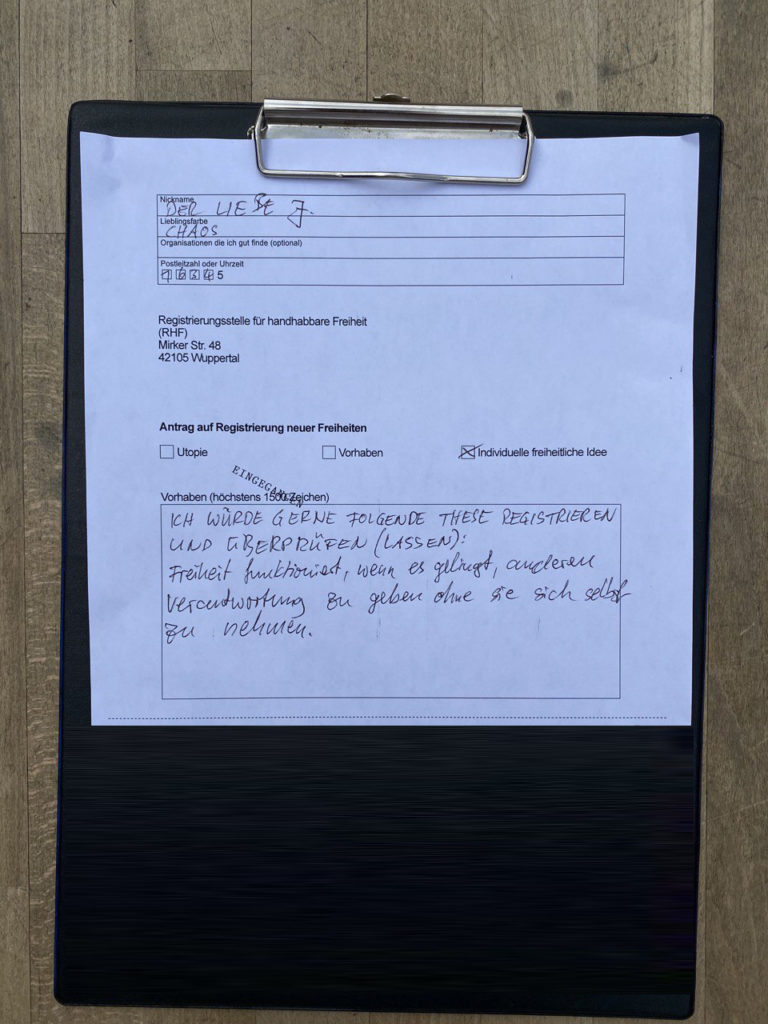 Nickname
DER LIEBE J.
Lieblingsfarbe
CHAOS
Organisationen die ich gut finde (optional)
Postleitzahl oder Uhrzeit
5
Registrierungsstelle für handhabbare Freiheit
(RHF)
Mirker Str. 48
42105 Wuppertal
Antrag auf Registrierung neuer Freiheiten
Utopie Vorhaben Individuelle freiheitliche Idee
EINGEGANGEN
Vorhaben (höchstens 1500 Zeichen)
ICH WÜRDE GERNE FOLGENDE THESE REGISTRIEREN
UND ÜBERPRÜFEN (LASSEN):
Freiheit funktioniert, wenn es gelingt, anderen
Verantwortung zu geben ohne sie sich selbst
zu nehmen.